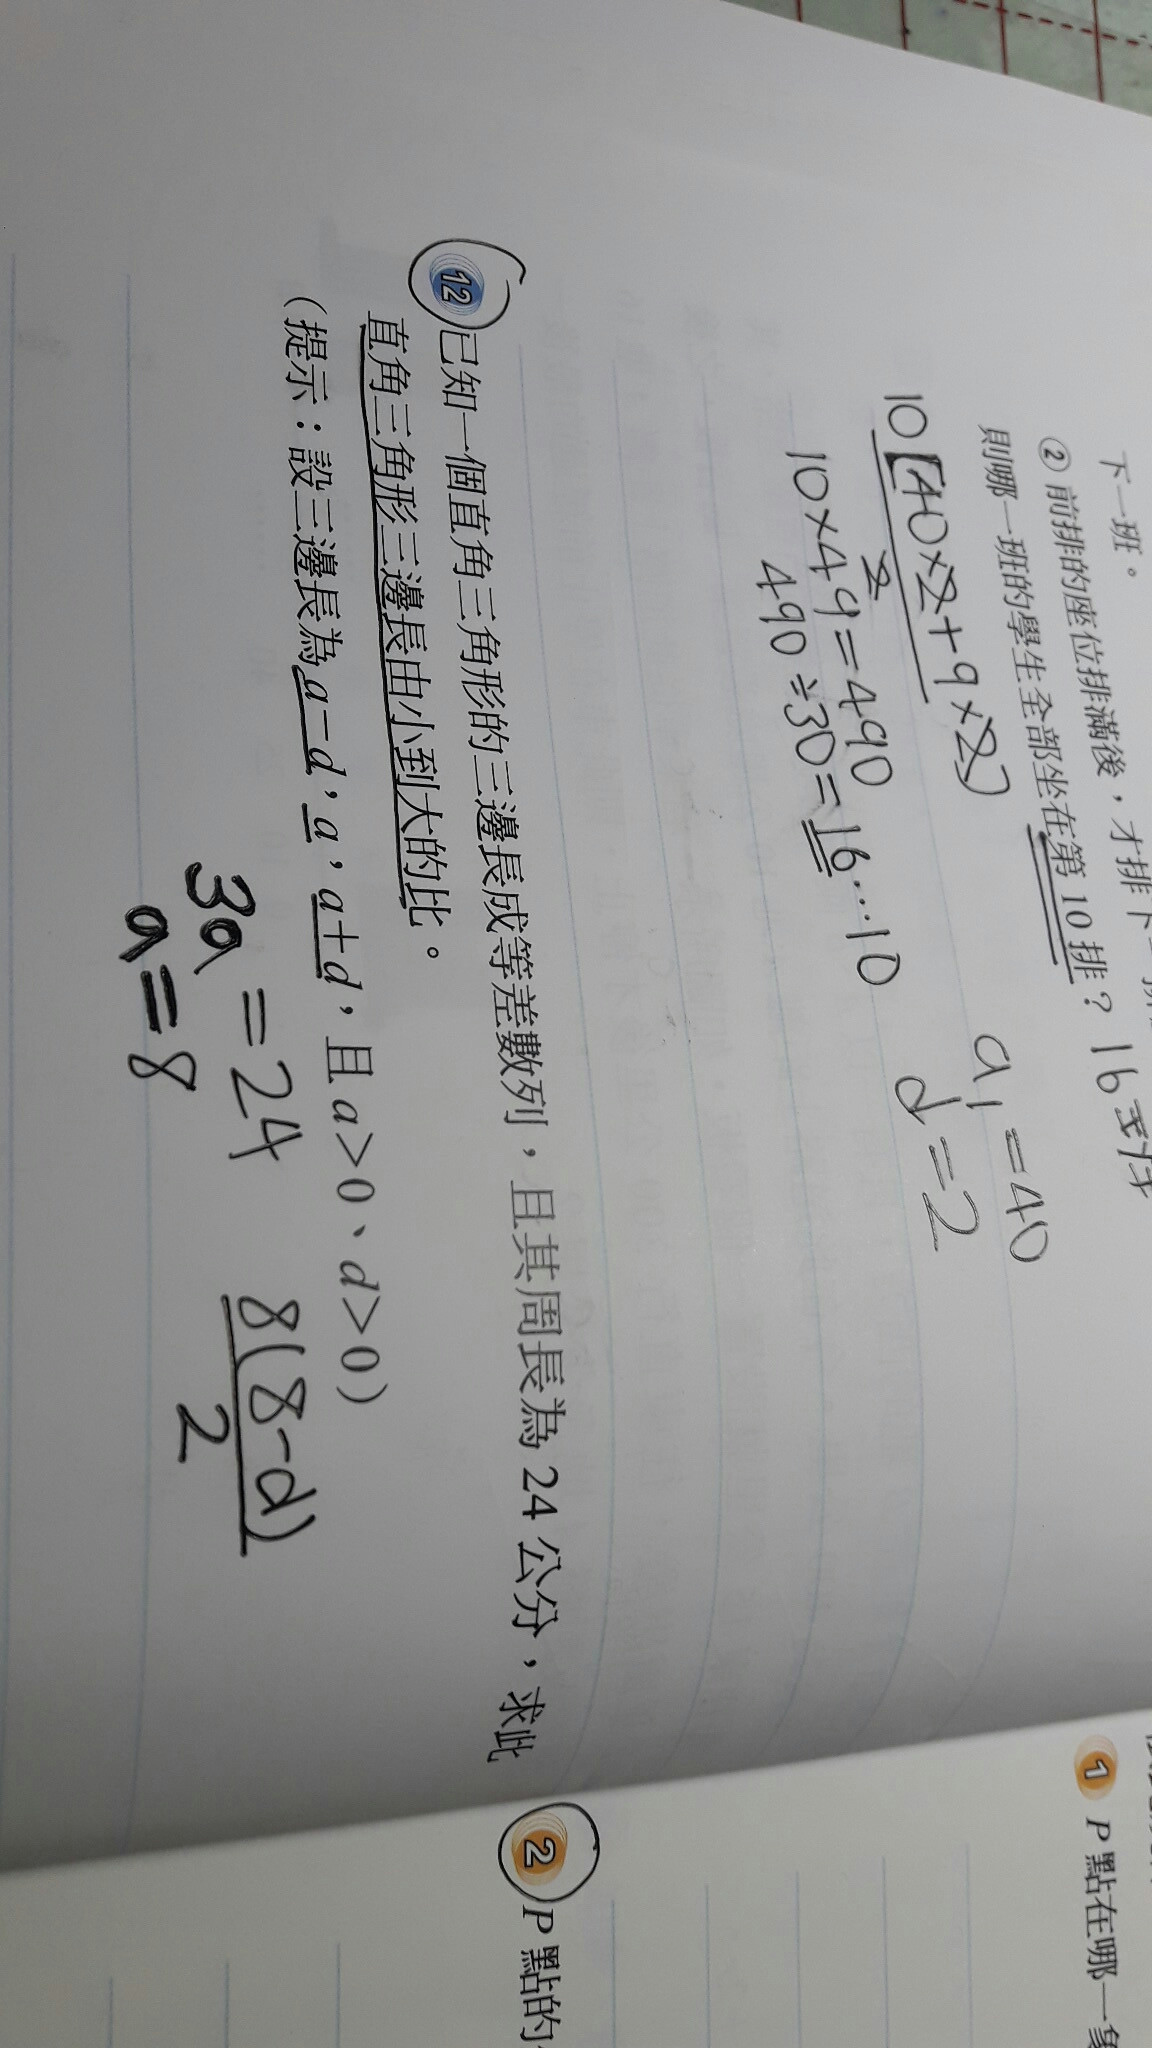 下一班。
② 前排的座位排滿後，才排下一
則哪一班的學生全部坐在第 10 排？ 16
10[40×2+9×2]
2
10×49=490
490÷30=16...10
a1=40
d=2
12 已知一個直角三角形的三邊長成等差數列，且其周長為 24 公分，求此
直角三角形三邊長由小到大的比。
（提示：設三邊長為 a－d，a，a＋d，且 a＞0、d＞0）
3a=24
a=8
8(8-d)
2
1 P 點在哪一象
2 P 點的